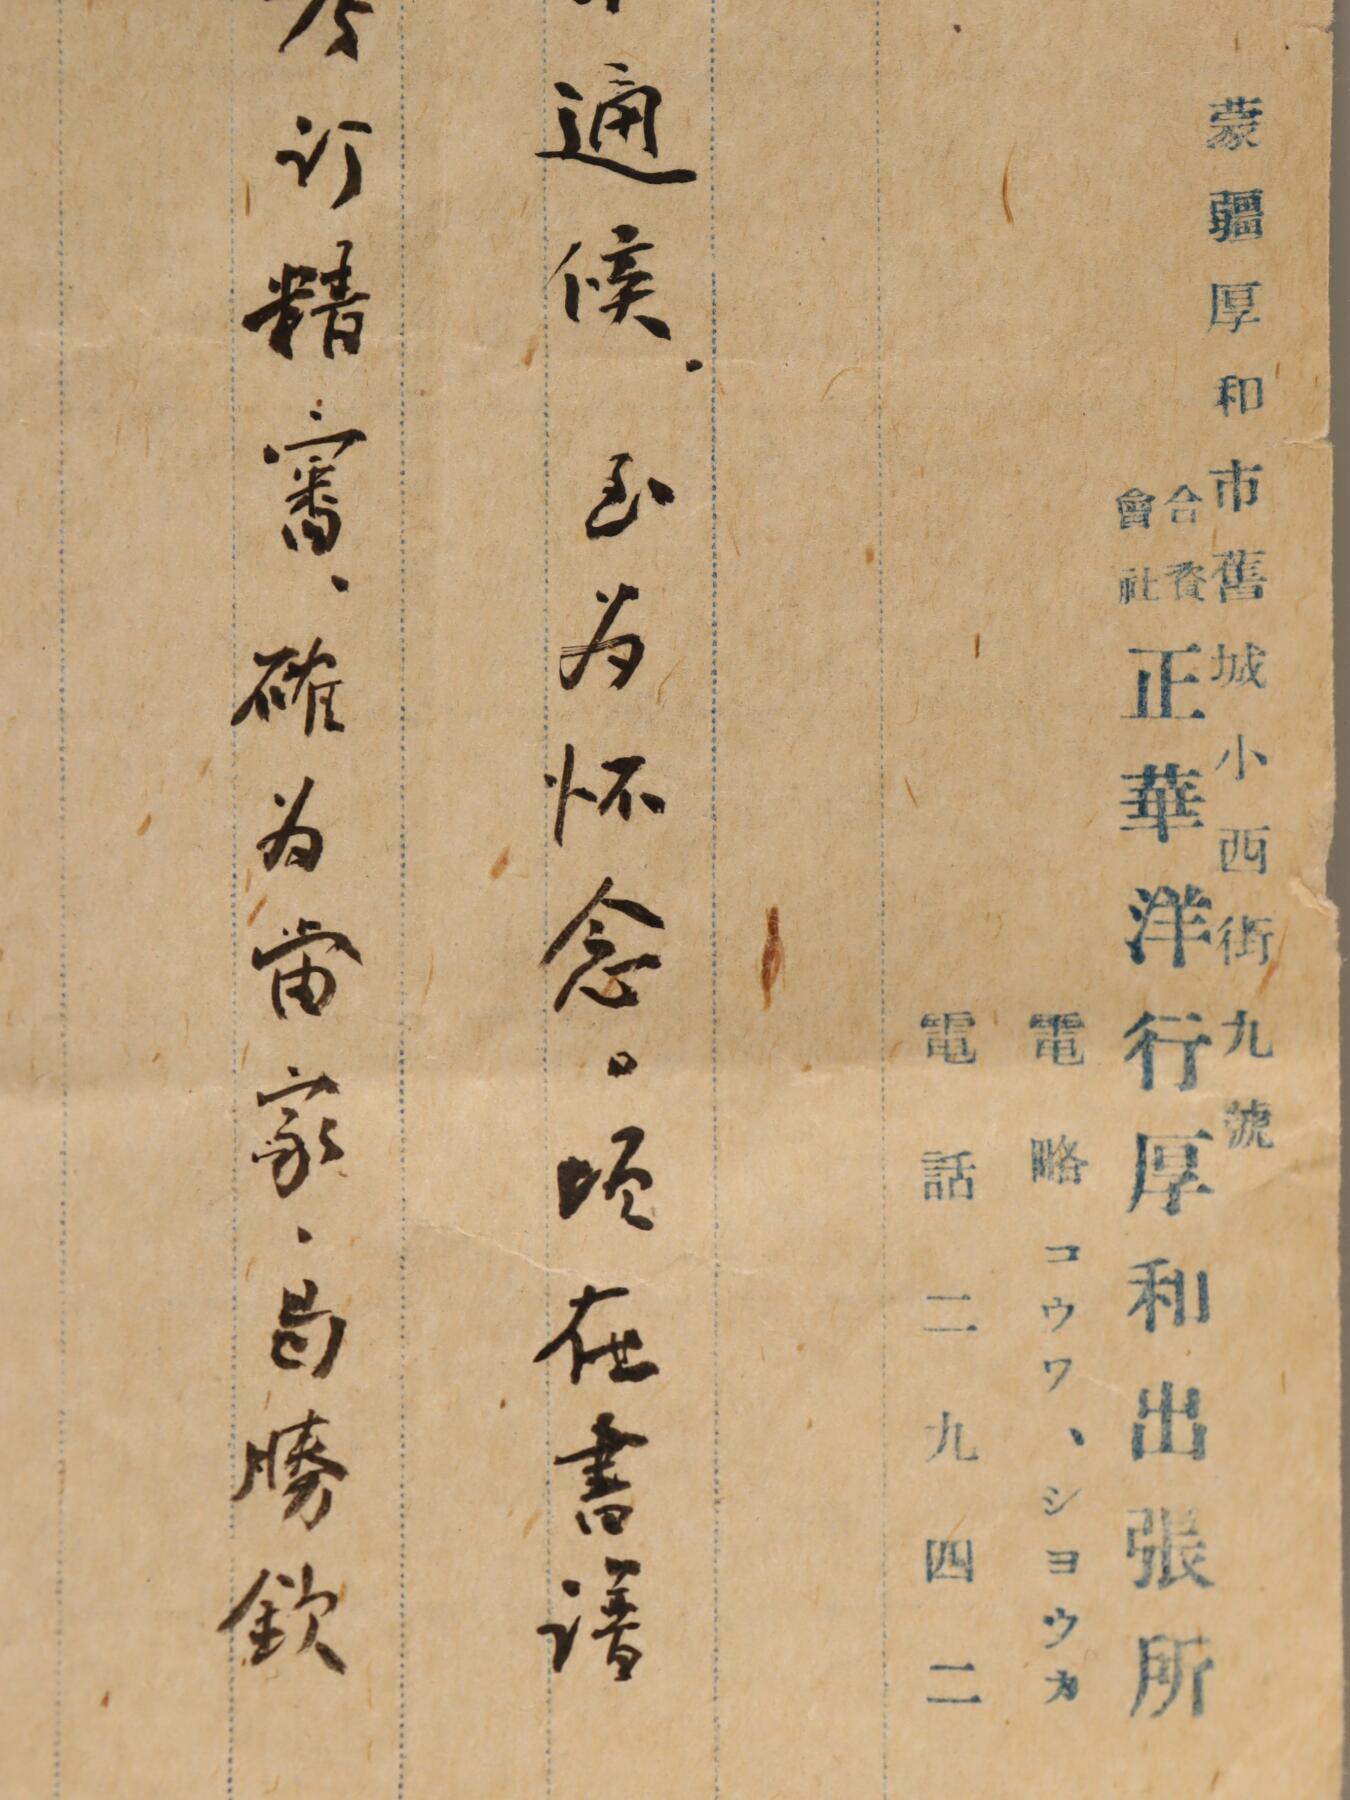 蒙疆厚和市舊城小西街九號
合資
會社
正華洋行厚和出張所
電略 コウワ、シヨウカ
電話 二九四二
通候．至为怀念。頃在書譜
訂精審、確为當家．曷勝欽